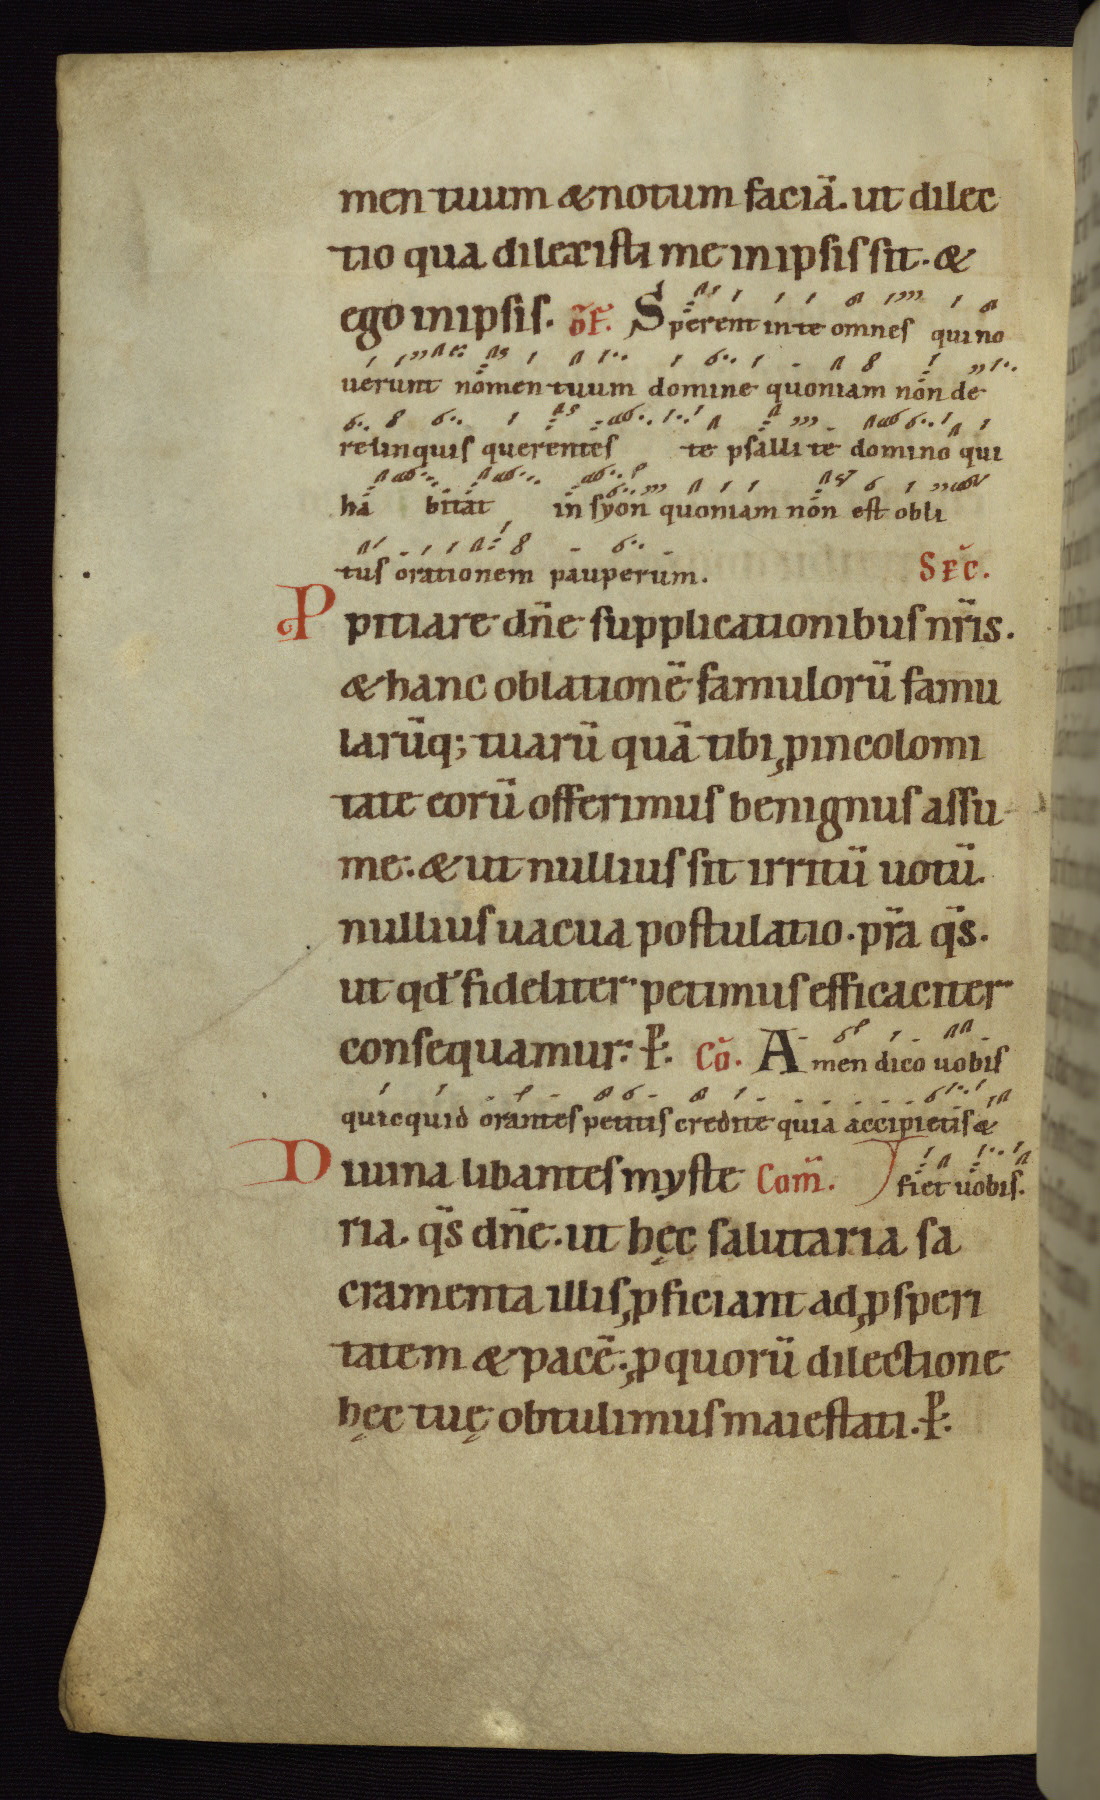 men tuum & notum faciā. ut dilec
tio qua dilexisti me in ipsis sit. &
ego in ipsis. OF̄. Sperent in te omnes qui no
uerunt nomen tuum domine quoniam non de
relinquis querentes te psallite domino qui
ha bitat in syon quoniam non est obli
tus orationem pauperum. SEC̄.
Ppitiare dn̄e supplicationibus nr̄is.
& hanc oblationē famulorū famu
larūq; tuarū quā tibi ꝓ incolomi
tate eorū offerimus benignus assu
me: & ut nullius sit irritū uotū.
nullius uacua postulatio. pr̄a q̄s.
ut qd̄ fideliter petimus efficaciter
consequamur: ꝑ. Cō. Amen dico uobis
quicquid orantes petitis credite quia accipietis &
Diuina libantes myste Com̄. fiet uobis.
ria. q̄s dn̄e. ut hęc salutaria sa
cramenta illis ꝓficiant ad ꝓsperi
tatem & pacē: ꝓ quorū dilectione
hęc tuę obtulimus maiestati. ꝑ.